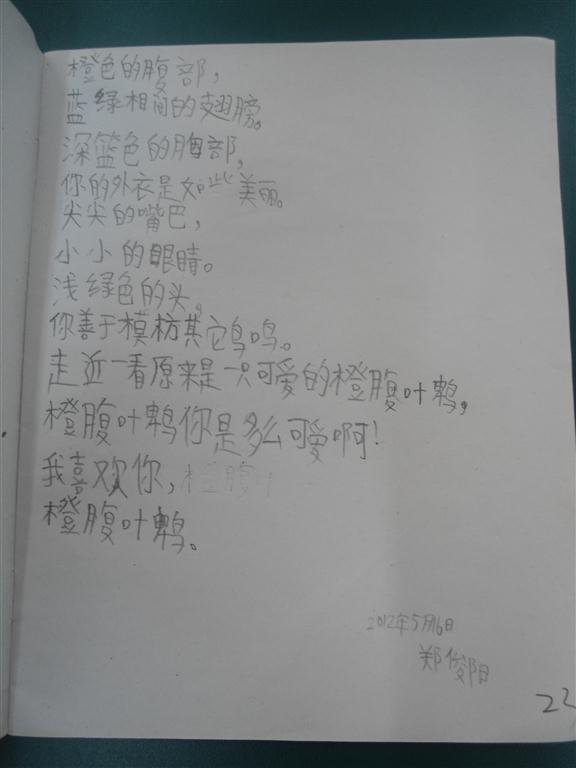 橙色的腹部，
蓝绿相间的翅膀。
深篮色的胸部，
你的外衣是如些美丽。
尖尖的嘴巴，
小小的眼睛。
浅绿色的头，
你善于模枋其它鸟鸣。
走近一看原来是一只可爱的橙腹叶鹎，
橙腹叶鹎你是多么可爱啊！
我喜欢你，橙腹叶
橙腹叶鹎。
2012年5月16日
郑俊阳
22